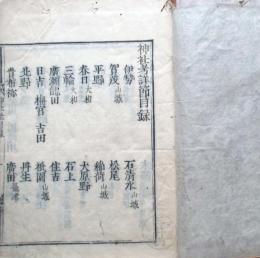 神社考詳節目録
伊勢 石清水山城
賀茂山城 松尾
平野 稲荷山城
春日大和 大原野
三輪大和 石上
廣瀬龍田 住吉
日吉 梅宮 吉田 祇園山城
北野 丹生
貴布祢 廣田